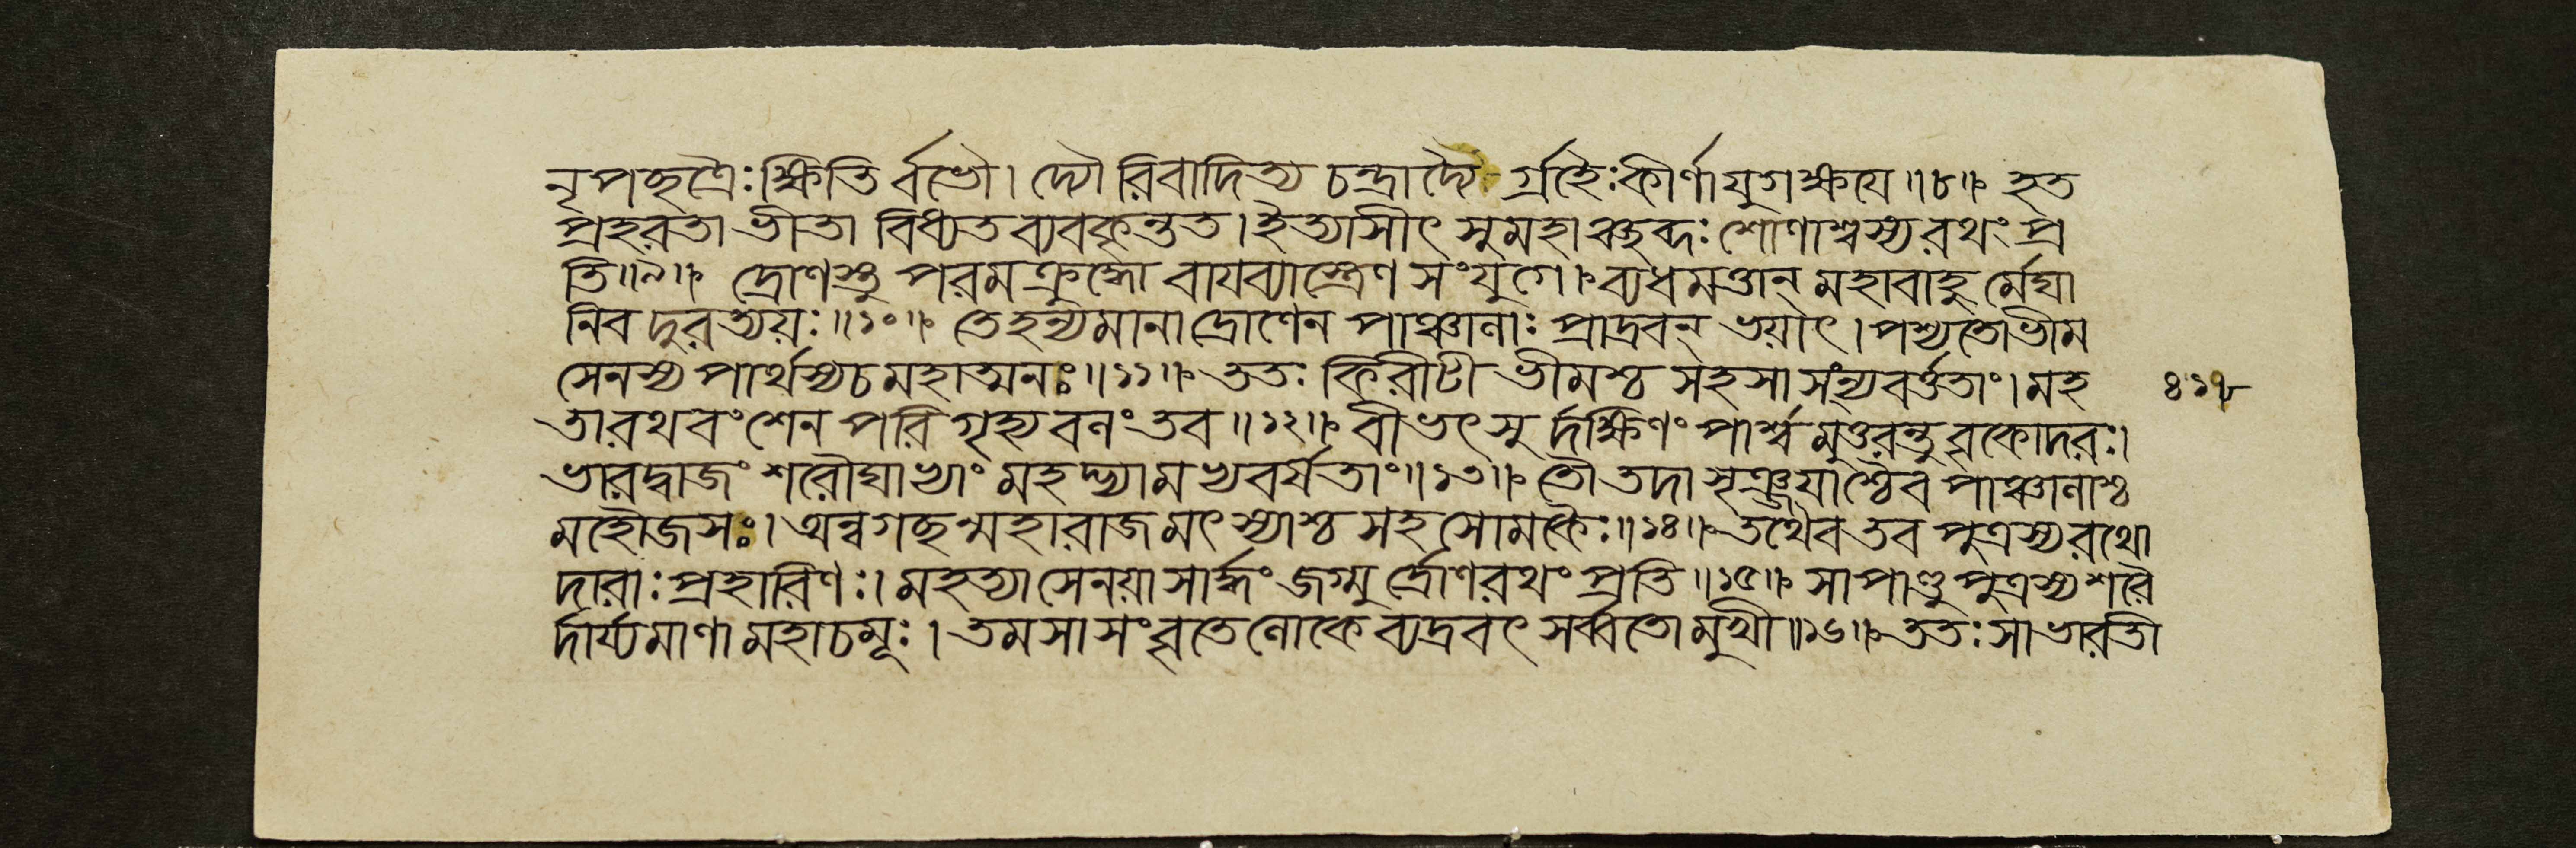 নৃপচ্ছত্রৈঃ ক্ষিতির্বভৌ। দ্যৌরিবাদিত্যচন্দ্রাদ্যৈর্গ্রহৈঃকীর্ণাযুগক্ষযে॥৮॥ হত
প্রহরতাভীতা বিধ্যত ব্যবকৃন্তত। ইত্যাসীৎ সুমহাঞ্ছব্দঃ শোণাশ্বস্যরথং প্র
তি॥৯॥ দ্রোণস্তু পরমক্রুদ্ধো বাযব্যাস্ত্রেণ সংযুগে। ব্যধমত্তান্ মহাবাহুর্মেঘা
নিব দুরত্যয়ঃ॥১০॥ তেহন্যমানাদ্রোণেন পাঞ্চালাঃ প্রাদ্রবন্ ভয়াৎ। পশ্যতোভীম
সেনস্য পার্থস্যচ মহাত্মনঃ॥১১॥ ততঃ কিরীটী ভীমশ্চ সহসা সংন্যবর্ত্ততাং। মহ
তারথবংশেন পরিগৃহ্য বলং তব॥১২॥ বীভৎসুর্দক্ষিণং পার্শ্বমুত্তরন্তুবৃকোদরঃ।
ভারদ্বাজং শরৌঘাভ্যাং মহদ্ভ্যামভ্যবর্ষতাং॥১৩॥ তৌতদা সৃঞ্জয়াশ্চৈব পাঞ্চালাশ্চ
মহৌজসঃ। অন্বগচ্ছন্মহারাজ মৎস্যাশ্চ সহসোমকৈঃ॥১৪॥ তথৈব তব পুত্রস্যরথো
দারাঃ প্রহারিণঃ। মহত্যাসেনয়াসার্দ্ধং জগ্মুর্দ্রোণরথং প্রতি॥১৫॥ সাপাণ্ডুপুত্রস্যশরৈ
র্দার্য্যমাণা মহাচমূঃ। তমসাসংবৃতেলোকে ব্যদ্রবৎ সর্ব্বতোমুখী॥১৬॥ ততঃ সাভারতী